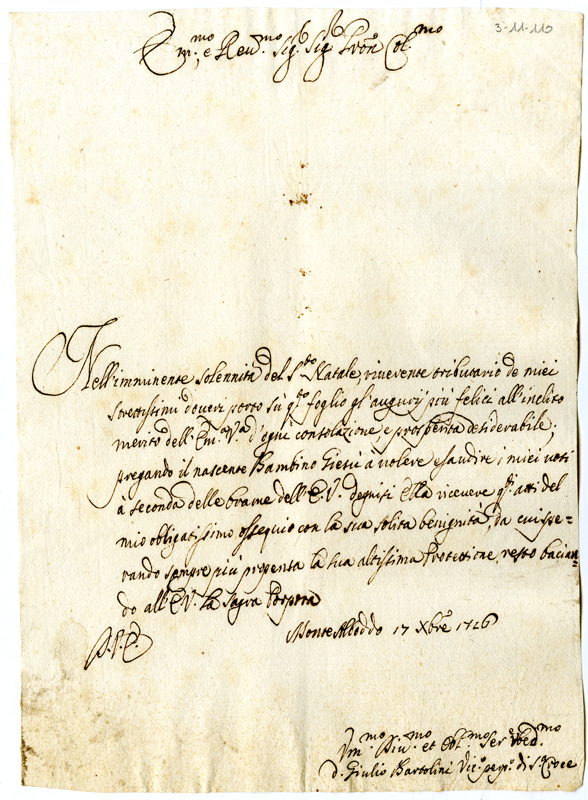 3-11-110
Em.mo e Reu.mo Sig.r Sig.r Pron Col.mo
Nell'imminente solennità del S.to Natale, riverente tributario de miei
strettissimi doveri porto sù q.to foglio gl'augurij più felici all'inclito
merito dell'Em. V.a d'ogni consolazione, e prosperità desiderabile;
pregando il nascente Bambino Giesù à volere esaudire i miei voti
à seconda delle brame dell'E. V. degniti Ella ricevere q.ti atti del
mio obligatissimo ossequio con la sua solita benignità, da cui spe=
rando sempre più propensa la sua altissima Protettione, resto bacian
do all'E. V. la Sagra Porpora
D. V. E.
Monte 17 Xbre 1726
Um.mo Diu.mo et Obl.mo Ser.e Obed.mo
d. Giulio Bartolini Vic.o di S. Croce